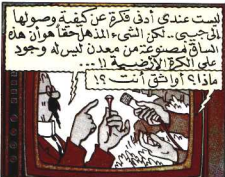 ليست عندي أدنى فكرة عن كيفية وصولها
إلى جيبي.. لكن الشيء المذهل حقاً هو أن هذه
الساق مصنوعة من معدن ليس له وجود
على الكرة الأرضية !!...
ماذا؟ أواثق أنت ؟!